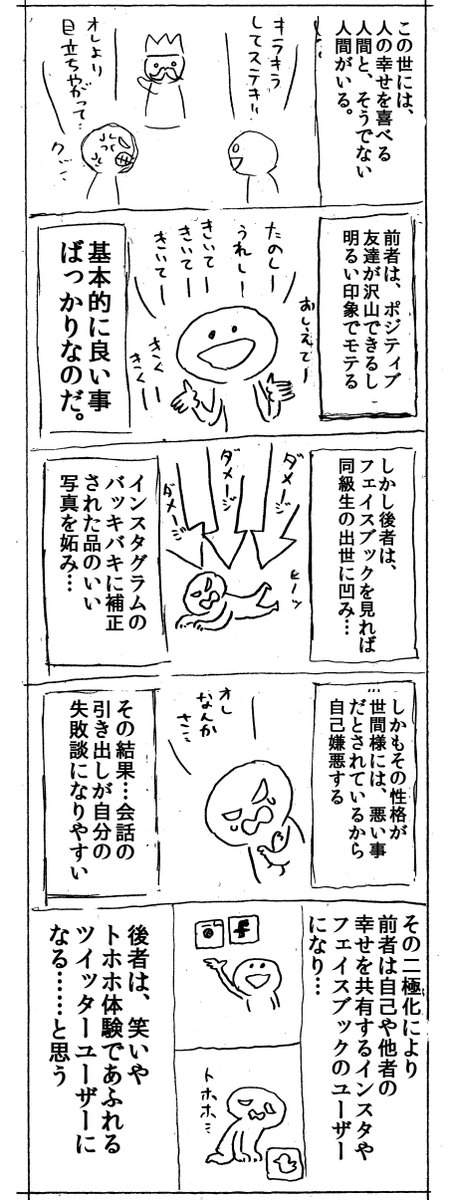 この世には、
人の幸せを喜べる
人間と、そうでない
人間がいる。
キラキラ
してステキ!!
オレより
目立ちやがって…
クソッ…
前者は、ポジティブ
友達が沢山できるし
明るい印象でモテる
おしえてー
たのしー
うれしー
きいてー
きいてー
きいてー
きくー
きくー
基本的に良い事
ばっかりなのだ。
しかし後者は、
フェイスブックを見れば
同級生の出世に凹み…
ダメージ
ダメージ
ダメージ
ヒーッ
インスタグラムの
バッキバキに補正
された品のいい
写真を妬み…
しかもその性格が
…世間様には、悪い事
だとされているから
自己嫌悪する
オレ
なんか
さ…
その結果…会話の
引き出しが自分の
失敗談になりやすい
その二極化により
前者は自己や他者の
幸せを共有するインスタや
フェイスブックのユーザー
になり…
f
トホホ…
後者は、笑いや
トホホ体験であふれる
ツイッターユーザーに
なる……と思う